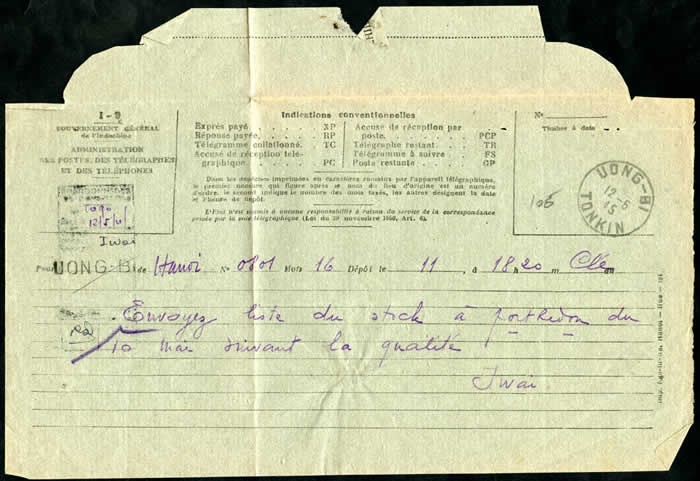 I-9
GOUVERNEMENT GÉNÉRAL
de l'Indochine
ADMINISTRATION
DES POSTES, DES TÉLÉGRAPHES
ET DES TÉLÉPHONES
Iwai
Indications conventionnelles
Exprès payé . . . . XP
Réponse payée, . . . . RP
Télégramme collationné. TC
Accusé de réception télé-
graphique. . . . . . PC
Accuse de réception par
poste. . . . . . . . PCP
Télégraphe restant. . . TR
Télégramme à suivre. . . FS
Poste restante . . . . GP
Dans les dépêches imprimées en caractères romains par l'appareil télégraphique,
le premier nombre qui figure après le nom du lieu d'origine est un numéro
d'ordre, le second indique le nombre des mots taxés, les autres désignent la date
et l'heure de dépôt.
L'Etat n'est soumis à aucune responsabilité à raison du service de la correspondance
privée par la voie télégraphique (Loi du 29 novembre 1850, Art. 6).
N°
Timbre à date
106
UONG-BI
12-5
45
TONKIN
Pour UONG-BI de Hanoi N° 0801 Mots 16 Dépôt le 11, à 18h20 m.
Envoyez liste du stock à portkedon du
10 mai suivant la qualité
Iwai